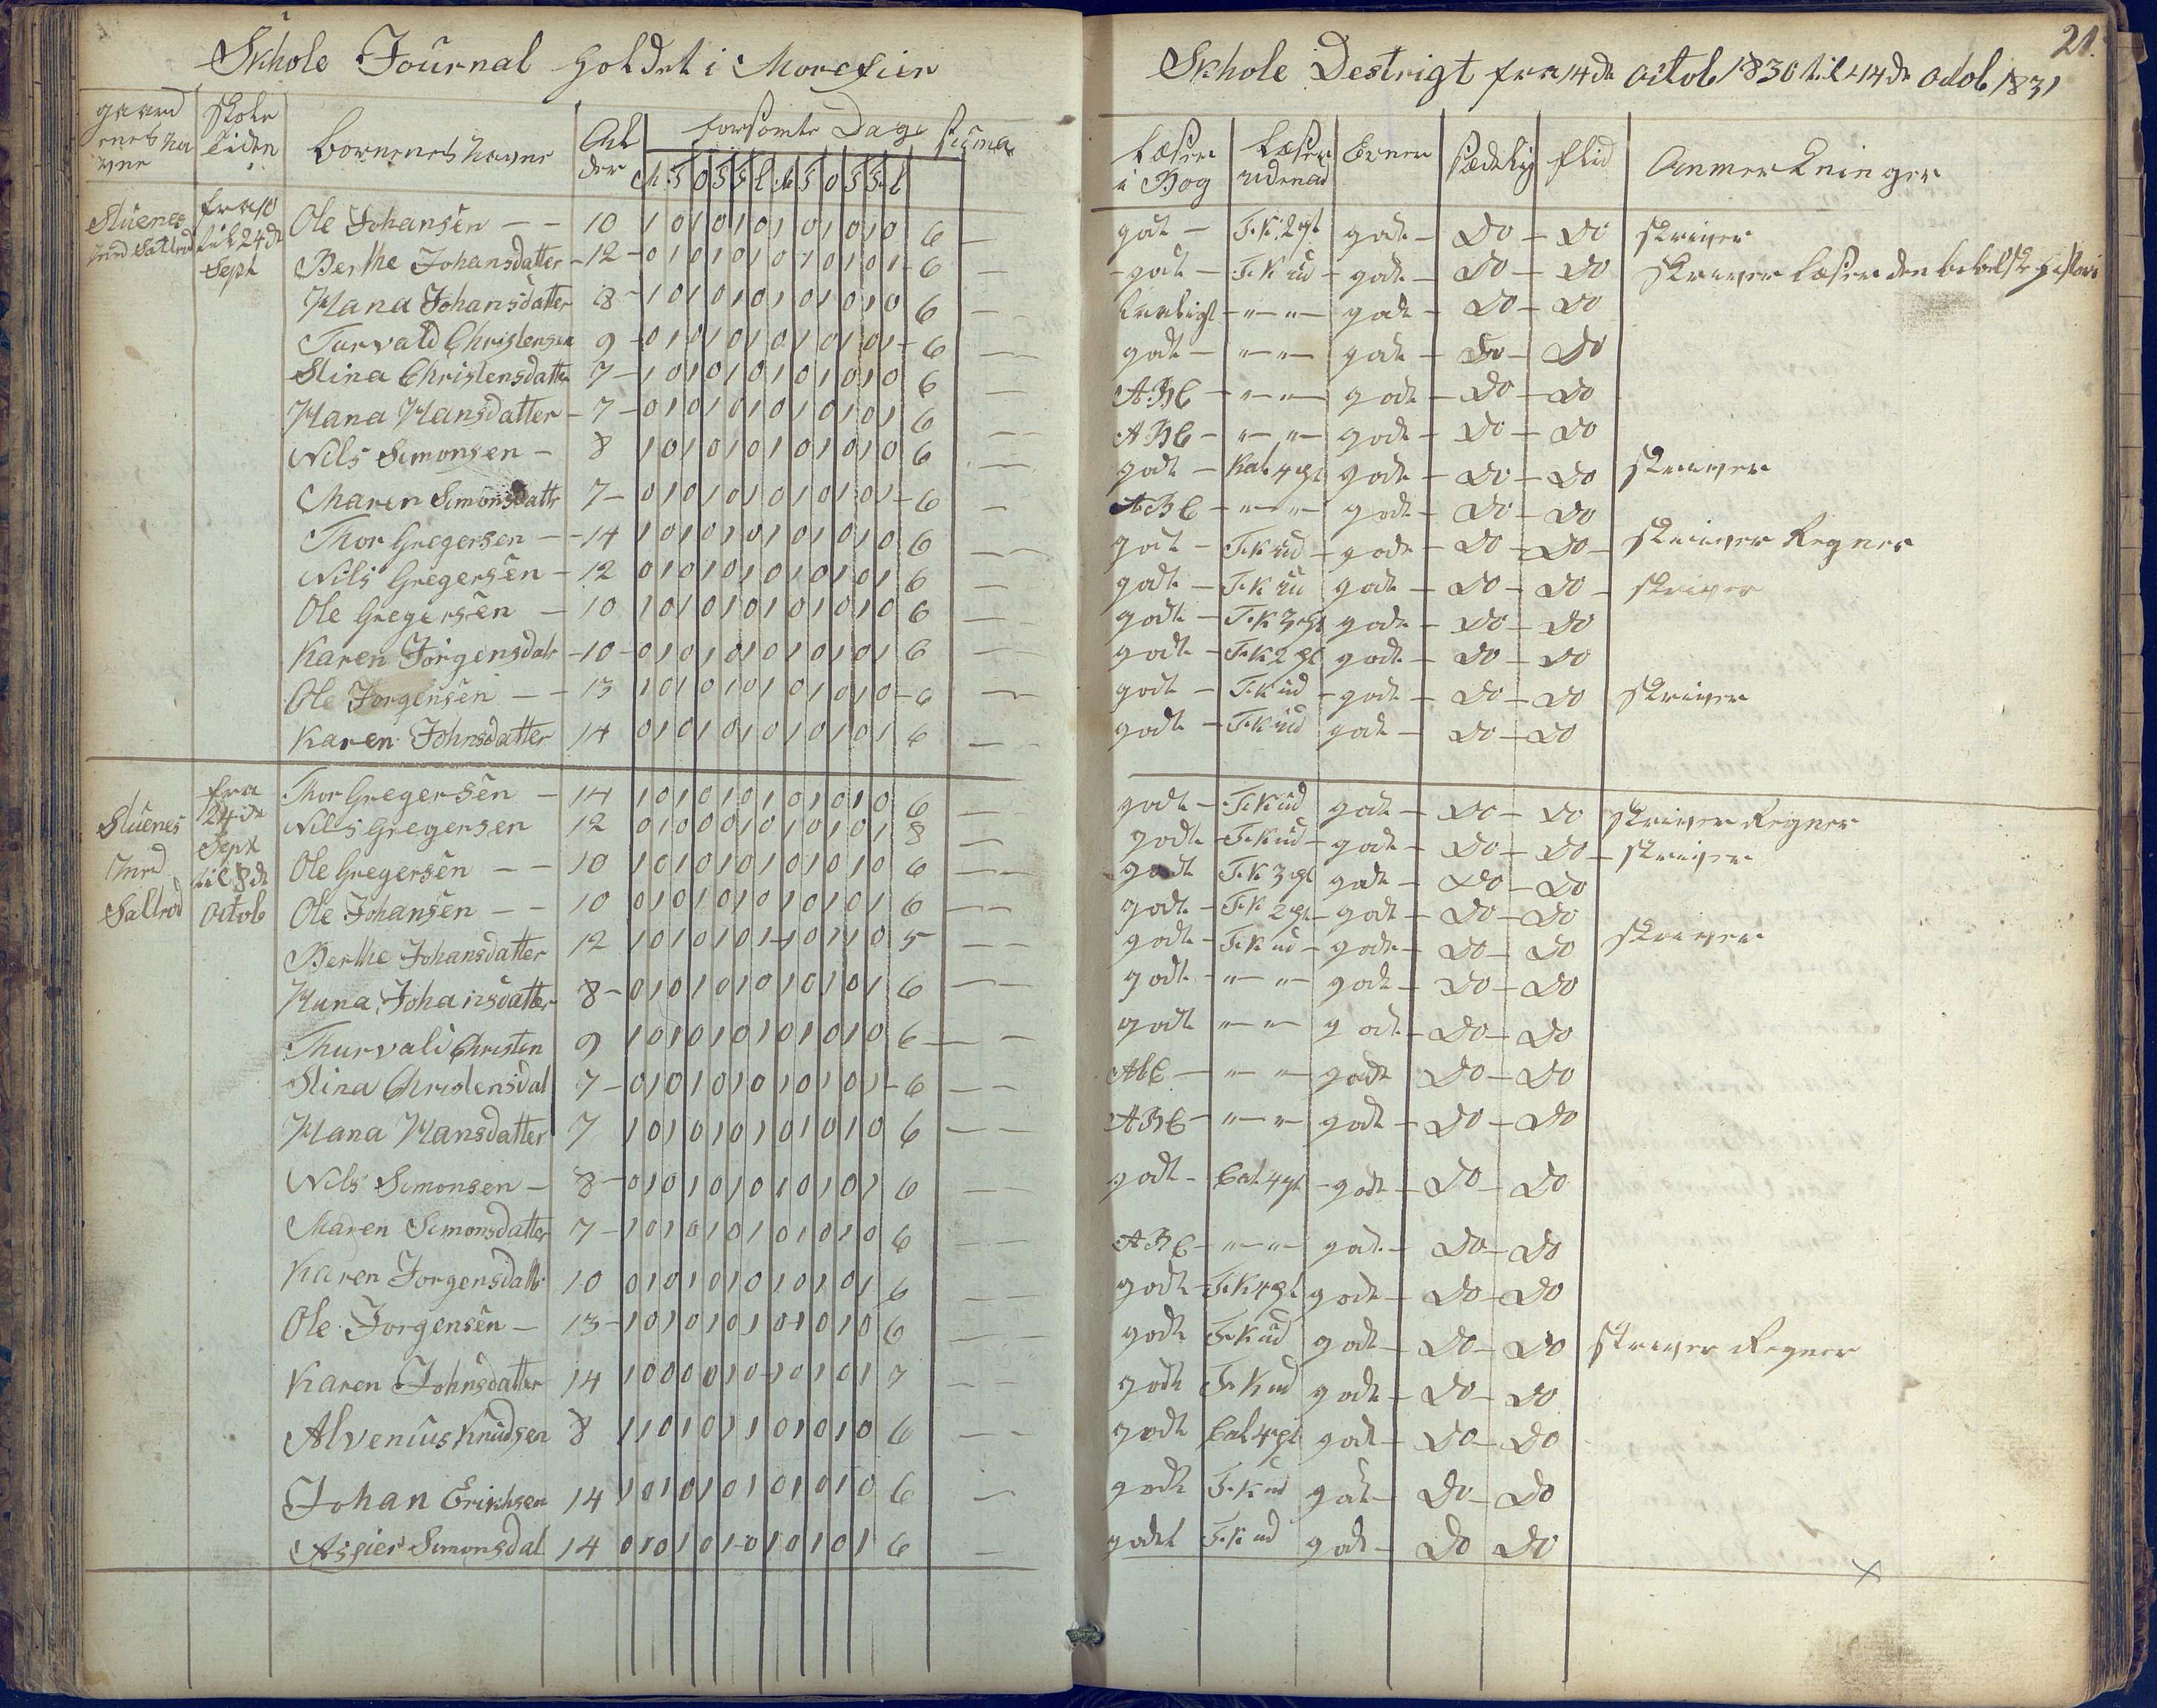 21.
Skhole Journal holdet i Morefier Skhole Destrigt fra 14de octob 1830 til 14de octob 1831
gaard enes na vne | skole tiden | bornenes navne | Ahl der | forsomte Dage | suma | læser i Bog | læser udenad | Evner | sædelig | flid | Anmerkninger
M T O T F L M T O T F L
Stuenes Inrd Saltrød | fra 10 til 24de Sept | Ole Johansen — — 10 1 0 1 0 1 0 1 0 1 0 1 0 6 — godt — F.K. 2 pt godt — Do — Do skriver
Berthe Johansdatter — 12 — 0 1 0 1 0 1 0 1 0 1 0 1 — 6 — godt — F.K ud — godt — Do — Do skriver læser den bibelske Histori
Hana Johansdatter 8 — 1 0 1 0 1 0 1 0 1 0 1 0 6 — — " — " — godt — Do — Do
Turvald Christensen 9 — 0 1 0 1 0 1 0 1 0 1 0 1 — 6 — godt — " — " — godt — Do — Do
Stina Christensdatter 7 — 1 0 1 0 1 0 1 0 1 0 1 0 6 — ABC — " — " — godt — Do — Do
Hana Hansdatter — 7 — 0 1 0 1 0 1 0 1 0 1 0 1 6 — ABC — " — " — godt — Do — Do
Nils Simonsen — 8 1 0 1 0 1 0 1 0 1 0 1 0 6 — godt — Kat 4 pt godt — Do — Do skriver
Maren Simonsdatr 7 — 0 1 0 1 0 1 0 1 0 1 0 1 — 6 — ABC — " — " — godt — Do — Do
Thor Gregersen — — 14 1 0 1 0 1 0 1 0 1 0 1 0 6 — godt — F.K ud — godt — Do — Do — skriver Regner
Nils Gregersen — 12 0 1 0 1 0 1 0 1 0 1 0 1 6 — godt — F.K ud godt — Do — Do — skriver
Ole Gregersen — 10 1 0 1 0 1 0 1 0 1 0 1 0 6 — godt — F.K 3 pt godt — Do — Do
Karen Jørgensdatr — 10 — 0 1 0 1 0 1 0 1 0 1 0 1 6 — godt — F.K 2 pt godt — Do — Do
Ole Jorgensen — — 13 1 0 1 0 1 0 1 0 1 0 1 0 — 6 — godt — F.K ud — godt — Do — Do skriver
Karen Johnsdatter 14 0 1 0 1 0 1 0 1 0 1 0 1 6 — godt — F.K ud godt — Do — Do
Stuenes Inrd Saltrød | fra 24de Sept til 8de octob | Thor Gregersen — 14 1 0 1 0 1 0 1 0 1 0 1 0 6 — godt — F.K ud godt — Do — Do skriver Regner
Nils Gregersen 12 0 1 0 0 0 1 0 1 0 1 0 1 8 — godt — F.K ud — godt — Do — Do — skriver
Ole Gregersen — — 10 1 0 1 0 1 0 1 0 1 0 1 0 6 — — godt F.K 3 pt godt — Do — Do
Ole Johansen — — 10 0 1 0 1 0 1 0 1 0 1 0 1 6 — — godt — F.K 2 pt — godt — Do — Do
Berthe Johansdatter 12 1 0 1 0 1 0 1 1 0 1 1 0 5 — — godt — F.K ud — godt — Do — Do skriver
Hana Johansdatter 8 — 0 1 0 1 0 1 0 1 0 1 0 1 6 — — godt — " — " — godt — Do — Do
Thurvald Christen 9 1 0 1 0 1 0 1 0 1 0 1 0 6 — — godt " — " — godt — Do — Do
Stina Christensdat 7 — 0 1 0 1 0 1 0 1 0 1 0 1 — 6 — — AbC — " — " — godt Do — Do
Hana Hansdatter 7 1 0 1 0 1 0 1 0 1 0 1 0 6 — — ABC — " — " — godt — Do — Do
Nils Simonsen — 8 — 0 1 0 1 0 1 0 1 0 1 0 1 6 — — godt — Cat 4 pt — godt — Do — Do
Maren Simonsdatter 7 — 1 0 1 0 1 0 1 0 1 0 1 0 6 — — ABC — " — " — godt — Do — Do
Karen Jorgensdattr 10 0 1 0 1 0 1 0 1 0 1 0 1 6 — — godt — F.K 4 pt godt — Do — Do
Ole Jorgensen — 13 — 1 0 1 0 1 0 1 0 1 0 1 0 6 — — godt F.K ud godt — Do — Do skriver Regner
Karen Johnsdatter 14 1 0 0 0 0 1 0 1 0 1 0 1 7 — — godt F.K ud godt — Do — Do
Alvenius Knudsen 8 1 1 0 1 0 1 1 0 1 0 1 0 6 — — godt Cat 4 pt godt — Do — Do
Johan Erikhsen 14 1 0 1 0 1 0 1 0 1 0 1 0 6 — godt F.K ud godt — Do — Do
Asgier Simonsdat 14 0 1 0 1 0 1 0 1 0 1 0 1 6 — godt F.K ud godt — Do Do